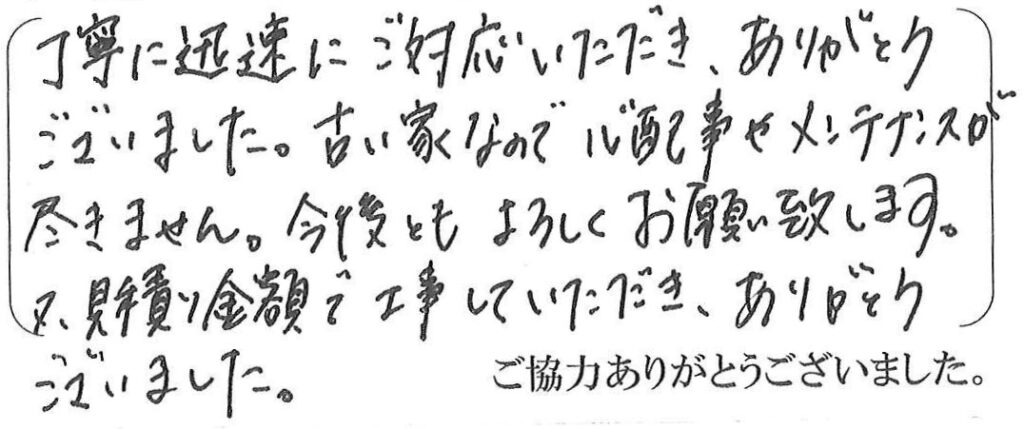 丁寧に迅速にご対応いただき、ありがとう
ございました。古い家なので心配事やメンテナンスが
尽きません。今後とも よろしくお願い致します。
又、見積り金額で工事していただき、ありがとう
ございました。
ご協力ありがとうございました。